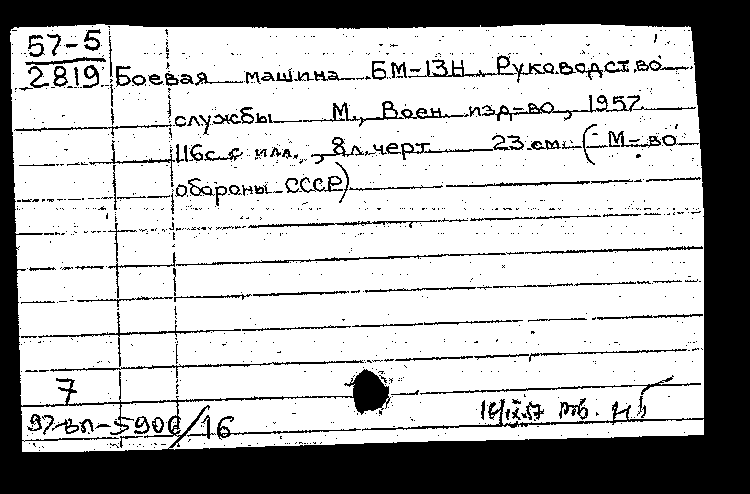 57-5
2819 Боевая машина БМ-13Н. Руководство
службы М., Воен. изд-во, 1957.
116с. с илл., 8л. черт. 23 см. (М-во
обороны СССР)
7
97-вл-5900/16
16/IX.57